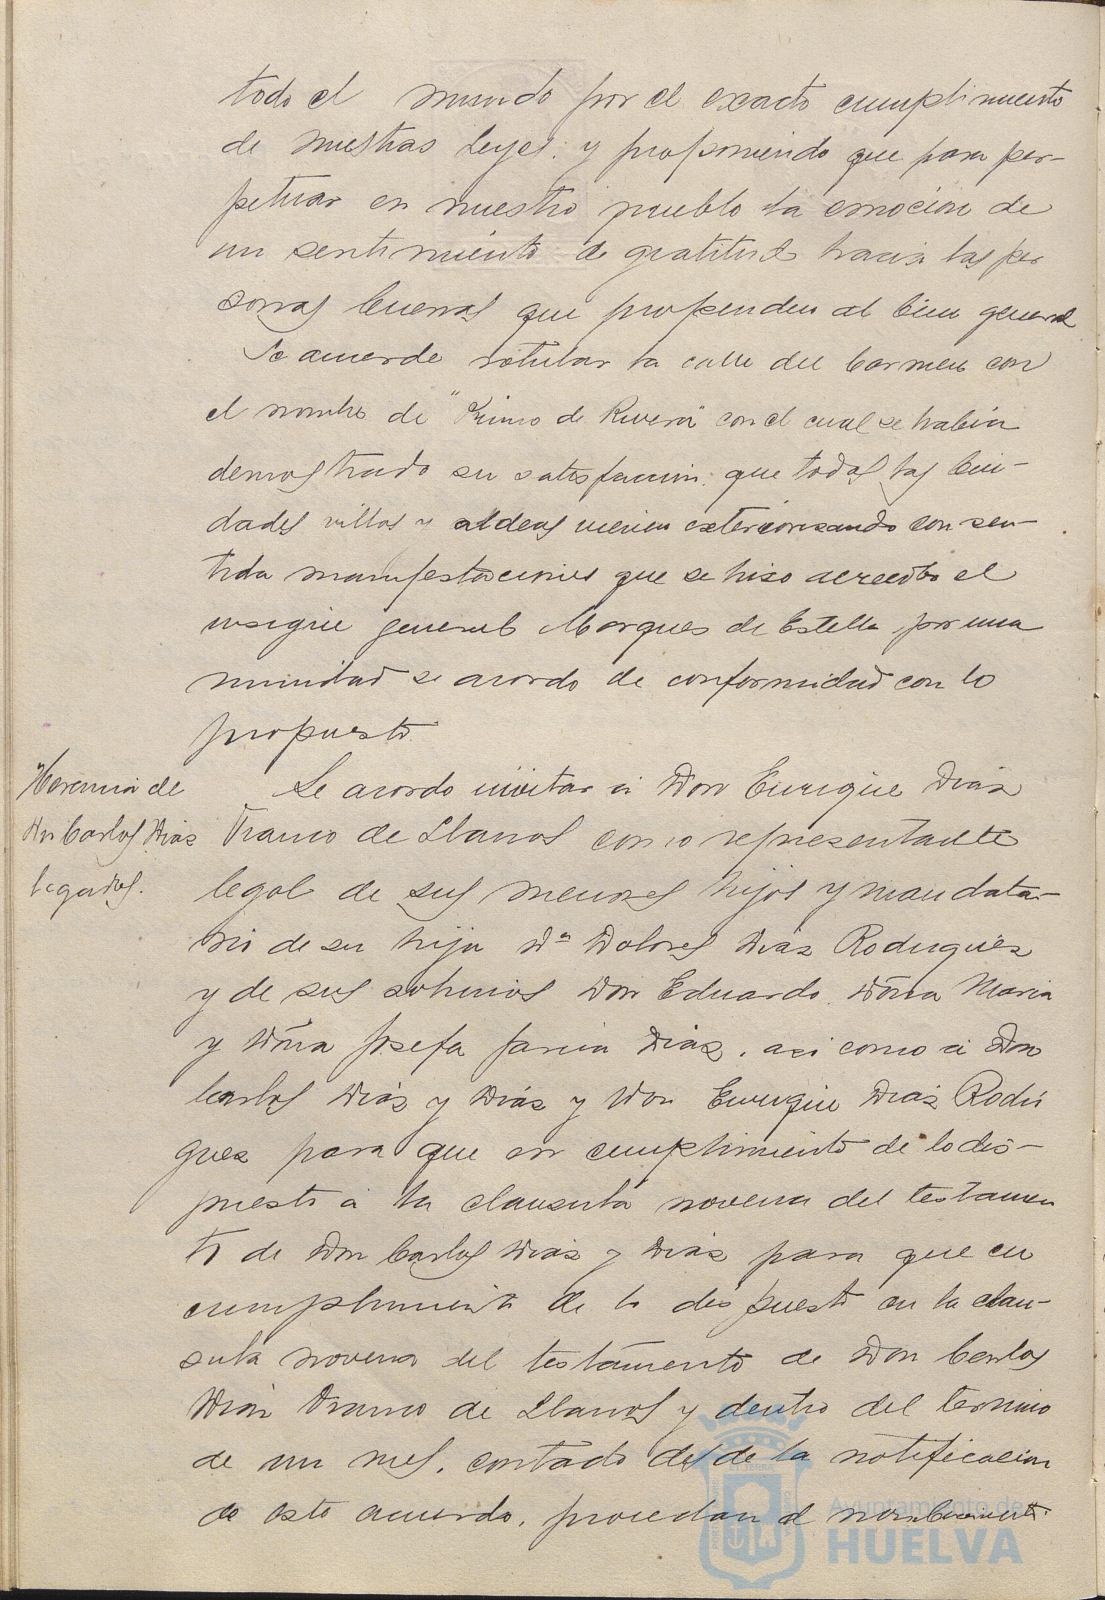 todo el mundo por el exacto cumplimiento
de nuestras leyes: y proponiendo que para per-
petuar en nuestro pueblo la emoción de
un sentimiento de gratitud hacia las per
sonas buenas que propenden al bien general
Se acuerde rotular la calle del Carmen con
el nombre de "Primo de Rivera" con el cual se habia
demostrado su satisfacción que todas las Ciu-
dades villas y aldeas vienen exteriorisando con sen-
tida manifestaciones que se hiso acreedor el
insigne general Marques de Estella, por una
nimidad se acordo de conformidad con lo
propuesto.
Herencia de
Dn Carlos Dias
legados.
Se acordo invitar a Don Enrique Dias
Franco de Llanos como representante
legal de sus menores hijos y mandata-
rio de su hija Dª Dolores Dias Rodrigues
y de sus sobrinos Don Eduardo, Dña Maria
y Dña Josefa Garcia Dias, asi como a Don
Carlos Dias y Dias y Don Enrique Dias Rodri
gues para que en cumplimiento de lo dis-
puesto a la clausula novena del testamen
to de Don Carlos Dias y Dias para que en
cumplimiento de lo dispuesto en la clau-
sula novena del testamento de Don Carlos
Dias Franco de Llanos y dentro del termino
de un mes, contado desde la notificacion
de este acuerdo, procedan al nombramiento
Ayuntamiento de
HUELVA